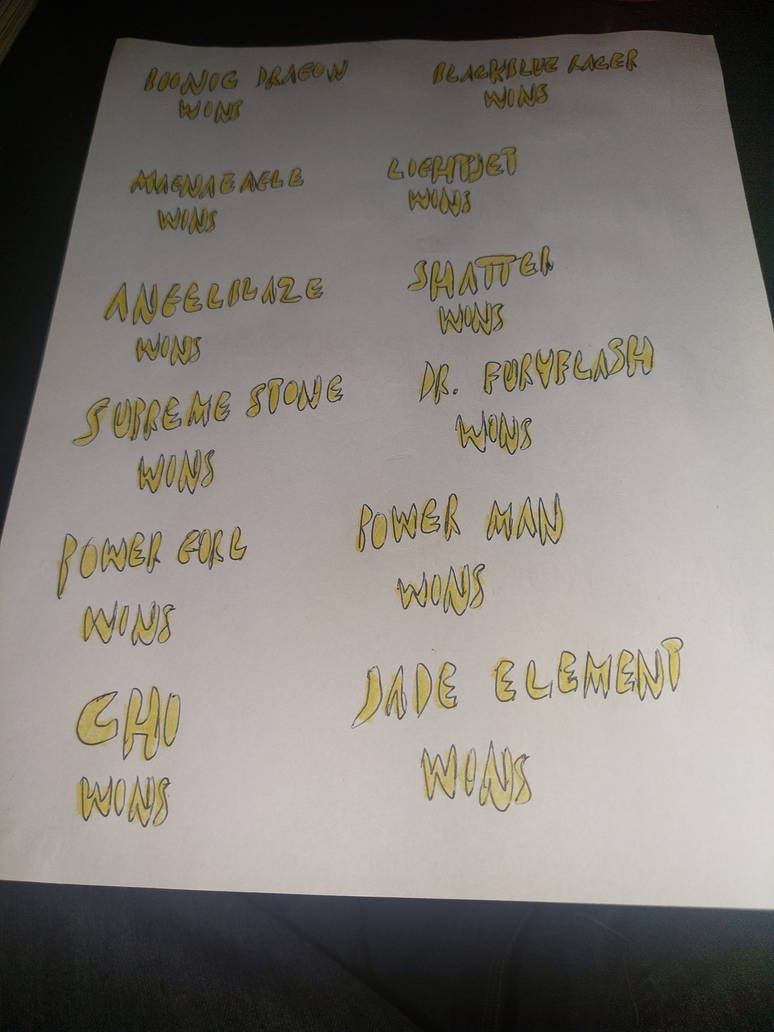 BIONIC DRAGON
WINS
BLACKBLUE RACER
WINS
MAGNAEAGLE
WINS
LIGHTJET
WINS
ANGELBLAZE
WINS
SHATTER
WINS
SUPREME STONE
WINS
DR. FURYFLASH
WINS
POWER GIRL
WINS
POWER MAN
WINS
CHI
WINS
JADE ELEMENT
WINS